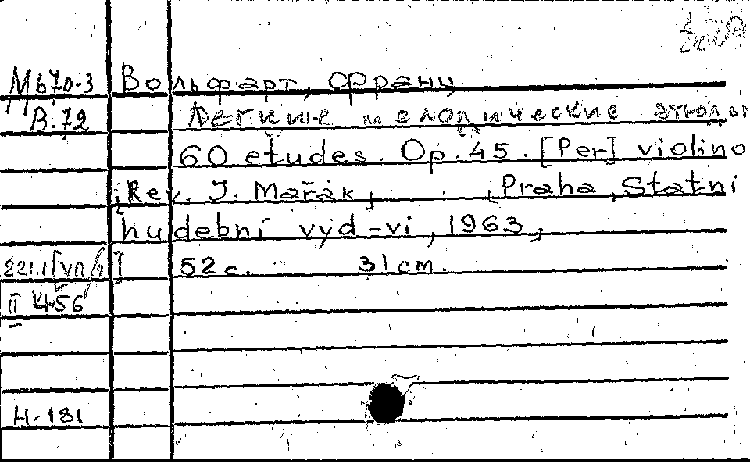 М670-3 Вольфарт, Франц
В.72 Легкие мелодические этюды
60 etudes. Op.45. [Per] violino
Rev. J. Mařák, Praha, Statní
hudební vyd-vi, 1963,
52 с. 31 cm.
II 456
Н-181